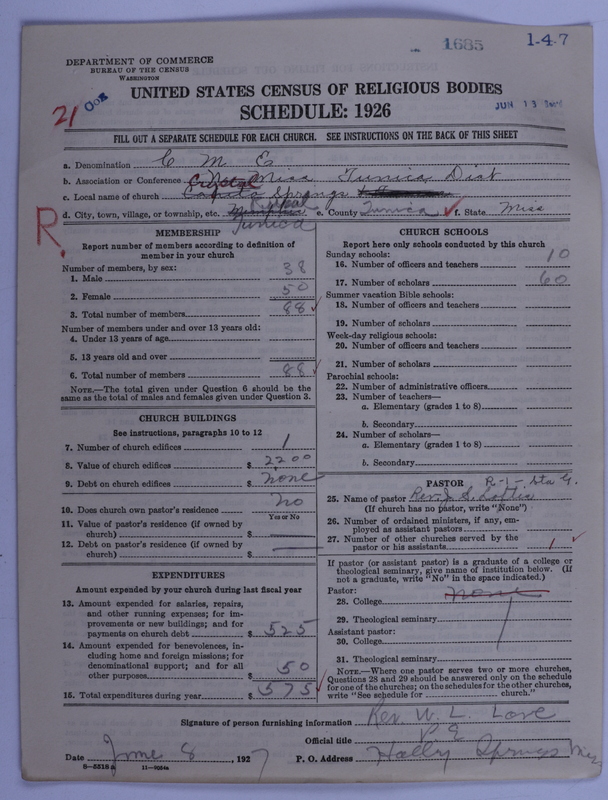 1685
1-4-7
DEPARTMENT OF COMMERCE
BUREAU OF THE CENSUS
WASHINGTON
21
JUN 13
UNITED STATES CENSUS OF RELIGIOUS BODIES
SCHEDULE: 1926
FILL OUT A SEPARATE SCHEDULE FOR EACH CHURCH. SEE INSTRUCTIONS ON THE BACK OF THIS SHEET
a. Denomination C M E
b. Association or Conference Miss Tunica Dist
c. Local name of church Crystal Springs
d. City, town, village, or township, etc. Tunica e. County Tunica f. State Miss
R.
MEMBERSHIP
Report number of members according to definition of
member in your church
Number of members, by sex:
1. Male 38
2. Female 50
3. Total number of members 88
Number of members under and over 13 years old:
4. Under 13 years of age
5. 13 years old and over
6. Total number of members 88
NOTE.—The total given under Question 6 should be the
same as the total of males and females given under Question 3.
CHURCH BUILDINGS
See instructions, paragraphs 10 to 12
7. Number of church edifices 1
8. Value of church edifices $ 2200
9. Debt on church edifices $ none
10. Does church own pastor's residence no
Yes or No
11. Value of pastor's residence (if owned by
church) $
12. Debt on pastor's residence (if owned by
church) $
EXPENDITURES
Amount expended by your church during last fiscal year
13. Amount expended for salaries, repairs,
and other running expenses; for im-
provements or new buildings; and for
payments on church debt $ 525
14. Amount expended for benevolences, in-
cluding home and foreign missions; for
denominational support; and for all
other purposes $ 50
15. Total expenditures during year $ 575
CHURCH SCHOOLS
Report here only schools conducted by this church
Sunday schools:
16. Number of officers and teachers 10
17. Number of scholars 60
Summer vacation Bible schools:
18. Number of officers and teachers
19. Number of scholars
Week-day religious schools:
20. Number of officers and teachers
21. Number of scholars
Parochial schools:
22. Number of administrative officers
23. Number of teachers—
a. Elementary (grades 1 to 8)
b. Secondary
24. Number of scholars—
a. Elementary (grades 1 to 8)
b. Secondary
PASTOR
25. Name of pastor Rev. J. S.
(If church has no pastor, write "None")
26. Number of ordained ministers, if any, em-
ployed as assistant pastors
27. Number of other churches served by the
pastor or his assistants 1
If pastor (or assistant pastor) is a graduate of a college or
theological seminary, give name of institution below. (If
not a graduate, write "No" in the space indicated.)
Pastor:
28. College none
29. Theological seminary
Assistant pastor:
30. College
31. Theological seminary
NOTE.—Where one pastor serves two or more churches,
Questions 28 and 29 should be answered only on the schedule
for one of the churches; on the schedules for the other churches,
write "See schedule for church."
Signature of person furnishing information Rev. W. L. Love
Official title P. E.
Date June 8, 1927 P. O. Address Holly Springs Miss
8-5518a 11-9284a